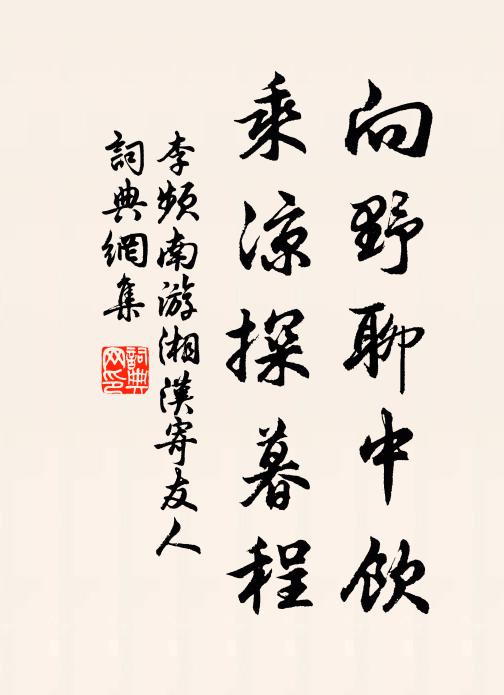 向野聊中飲
乘涼探暮程
李頻南游湘漢寄友人
詞典網集
詞典網印